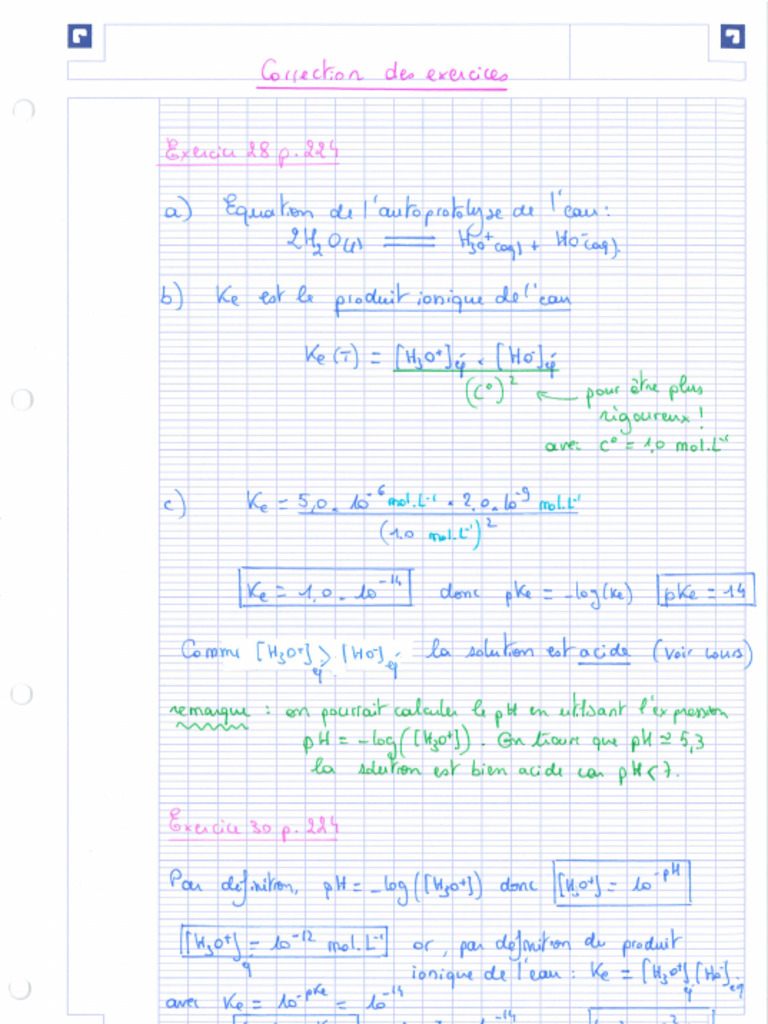 Correction des exercices
Exercice 28 p. 224
a) Equation de l'autoprotolyse de l'eau :
2H₂O(l) ⇌ H₃O⁺(aq) + HO⁻(aq).
b) Ke est le produit ionique de l'eau
Ke (T) = [H₃O⁺]éq × [HO⁻]éq
(C°)²
← pour être plus
rigoureux !
avec C° = 1,0 mol.L⁻¹
c) Ke = 5,0 × 10⁻⁶ mol.L⁻¹ × 2,0 × 10⁻⁹ mol.L⁻¹
(1.0 mol.L⁻¹)²
Ke = 1,0 × 10⁻¹⁴ donc pKe = -log(Ke) pKe = 14
Comme [H₃O⁺]éq > [HO⁻]éq la solution est acide (voir cours)
remarque : on pourrait calculer le pH en utilisant l'expression
pH = -log([H₃O⁺]). On trouve que pH ≃ 5,3
la solution est bien acide car pH < 7.
Exercice 30 p. 224
Par définition, pH = -log([H₃O⁺]) donc [H₃O⁺] = 10⁻ᵖᴴ
[H₃O⁺]éq = 10⁻¹² mol.L⁻¹ or, par définition du produit
ionique de l'eau : Ke = [H₃O⁺]éq [HO⁻]éq
avec Ke = 10⁻ᵖᴷᵉ = 10⁻¹⁴